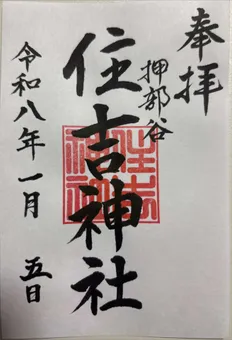 奉拝
押部谷
住吉神社
令和八年一月五日
住吉神社